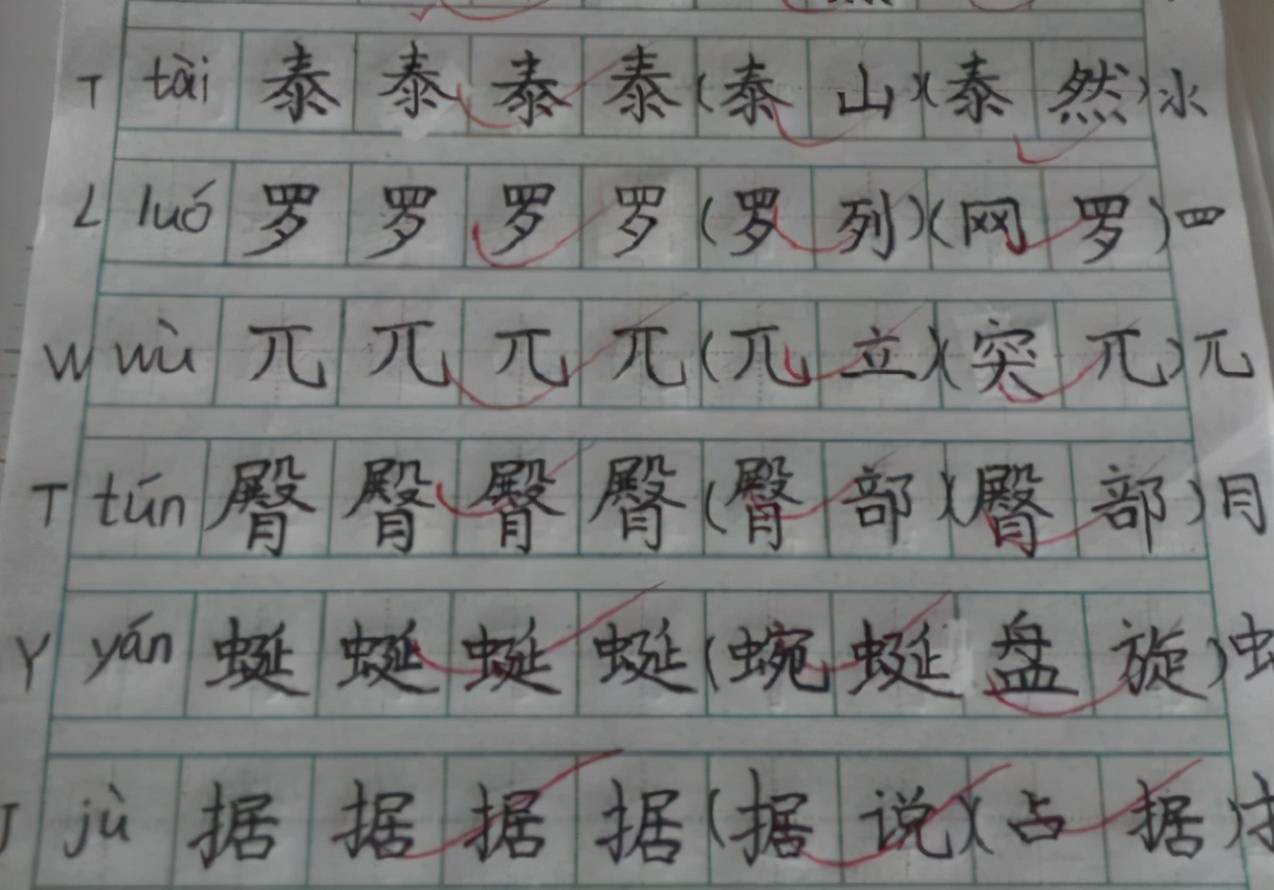 T tài 泰 泰 泰 泰 (泰 山)(泰 然) 水
L luó 罗 罗 罗 罗 (罗 列)(网 罗) 四
W wù 兀 兀 兀 兀 (兀 立)(突 兀) 兀
T tún 臀 臀 臀 臀 (臀 部)(臀 部) 月
Y yán 蜒 蜒 蜒 蜒 (蜿 蜒 盘 旋) 虫
J jù 据 据 据 据 (据 说)(占 据) 扌